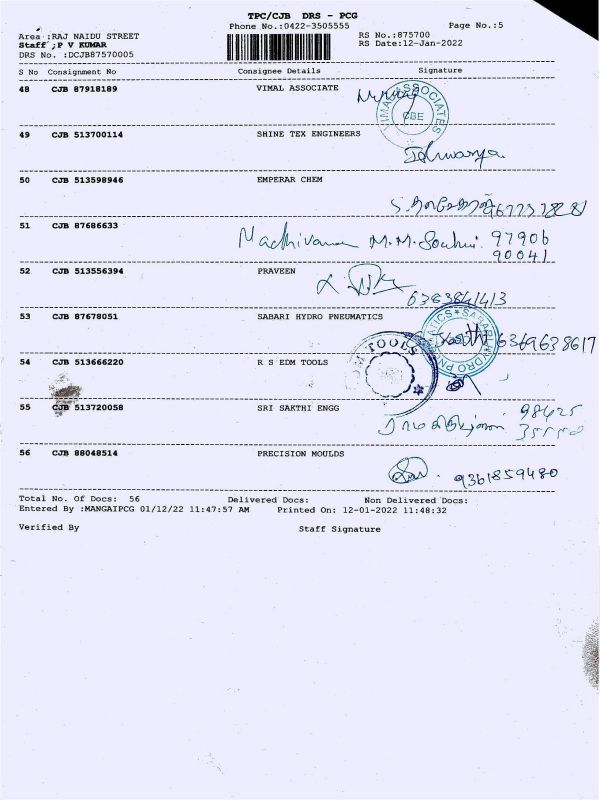 TPC/CJB DRS - PCG
Phone No.:0422-3505555 Page No.:5
Area :RAJ NAIDU STREET RS No.:875700
Staff ;P V KUMAR RS Date:12-Jan-2022
DRS No. :DCJB87570005
S No Consignment No Consignee Details Signature
48 CJB 87918189 VIMAL ASSOCIATE
VIMAL ASSOCIATES
CBE
49 CJB 513700114 SHINE TEX ENGINEERS
50 CJB 513598946 EMPERAR CHEM
51 CJB 87686633
M.M. 97906
90041
52 CJB 513556394 PRAVEEN
6383841413
53 CJB 87678051 SABARI HYDRO PNEUMATICS
SABARI HYDRO PNEUMATICS
Karthi 6369638617
54 CJB 513666220 R S EDM TOOLS
TOOLS
55 CJB 513720058 SRI SAKTHI ENGG
98425
56 CJB 88048514 PRECISION MOULDS
9361859480
Total No. Of Docs: 56 Delivered Docs: Non Delivered Docs:
Entered By :MANGAIPCG 01/12/22 11:47:57 AM Printed On: 12-01-2022 11:48:32
Verified By Staff Signature